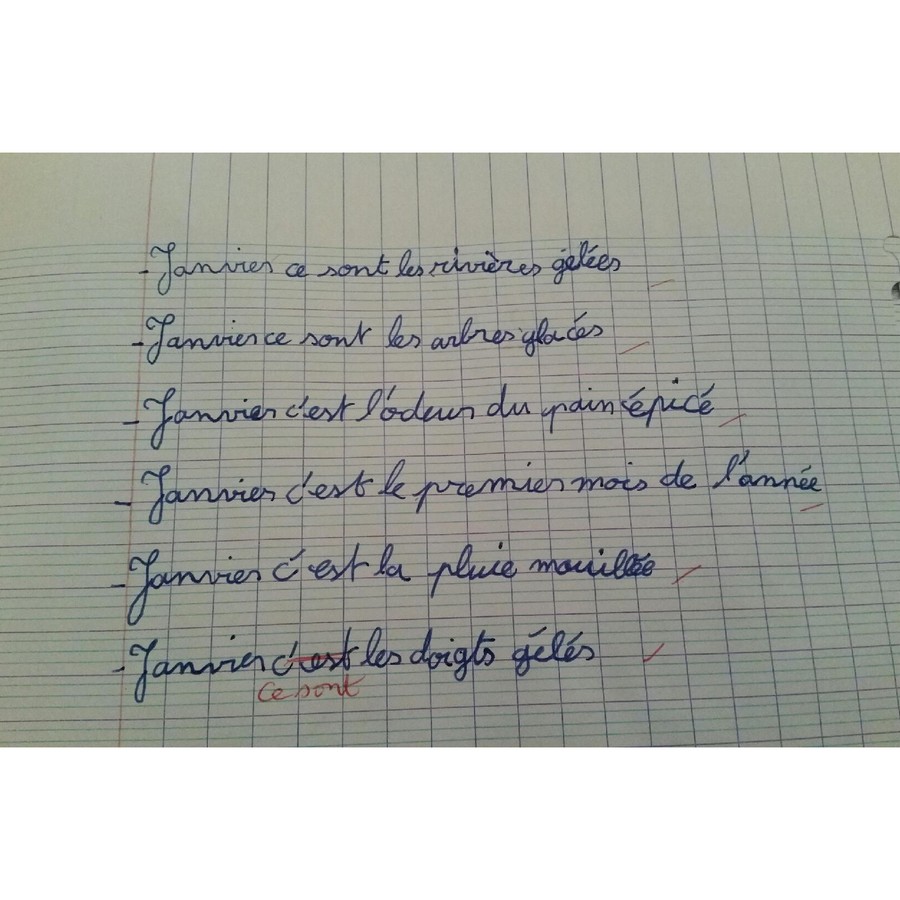 - Janvier ce sont les rivières gélées
- Janvier ce sont les arbres glacés
- Janvier c'est l'ôdeur du pain épicé
- Janvier c'est le premier mois de l'année
- Janvier c'est la pluie mouillée
- Janvier c'est les doigts gélés
ce sont